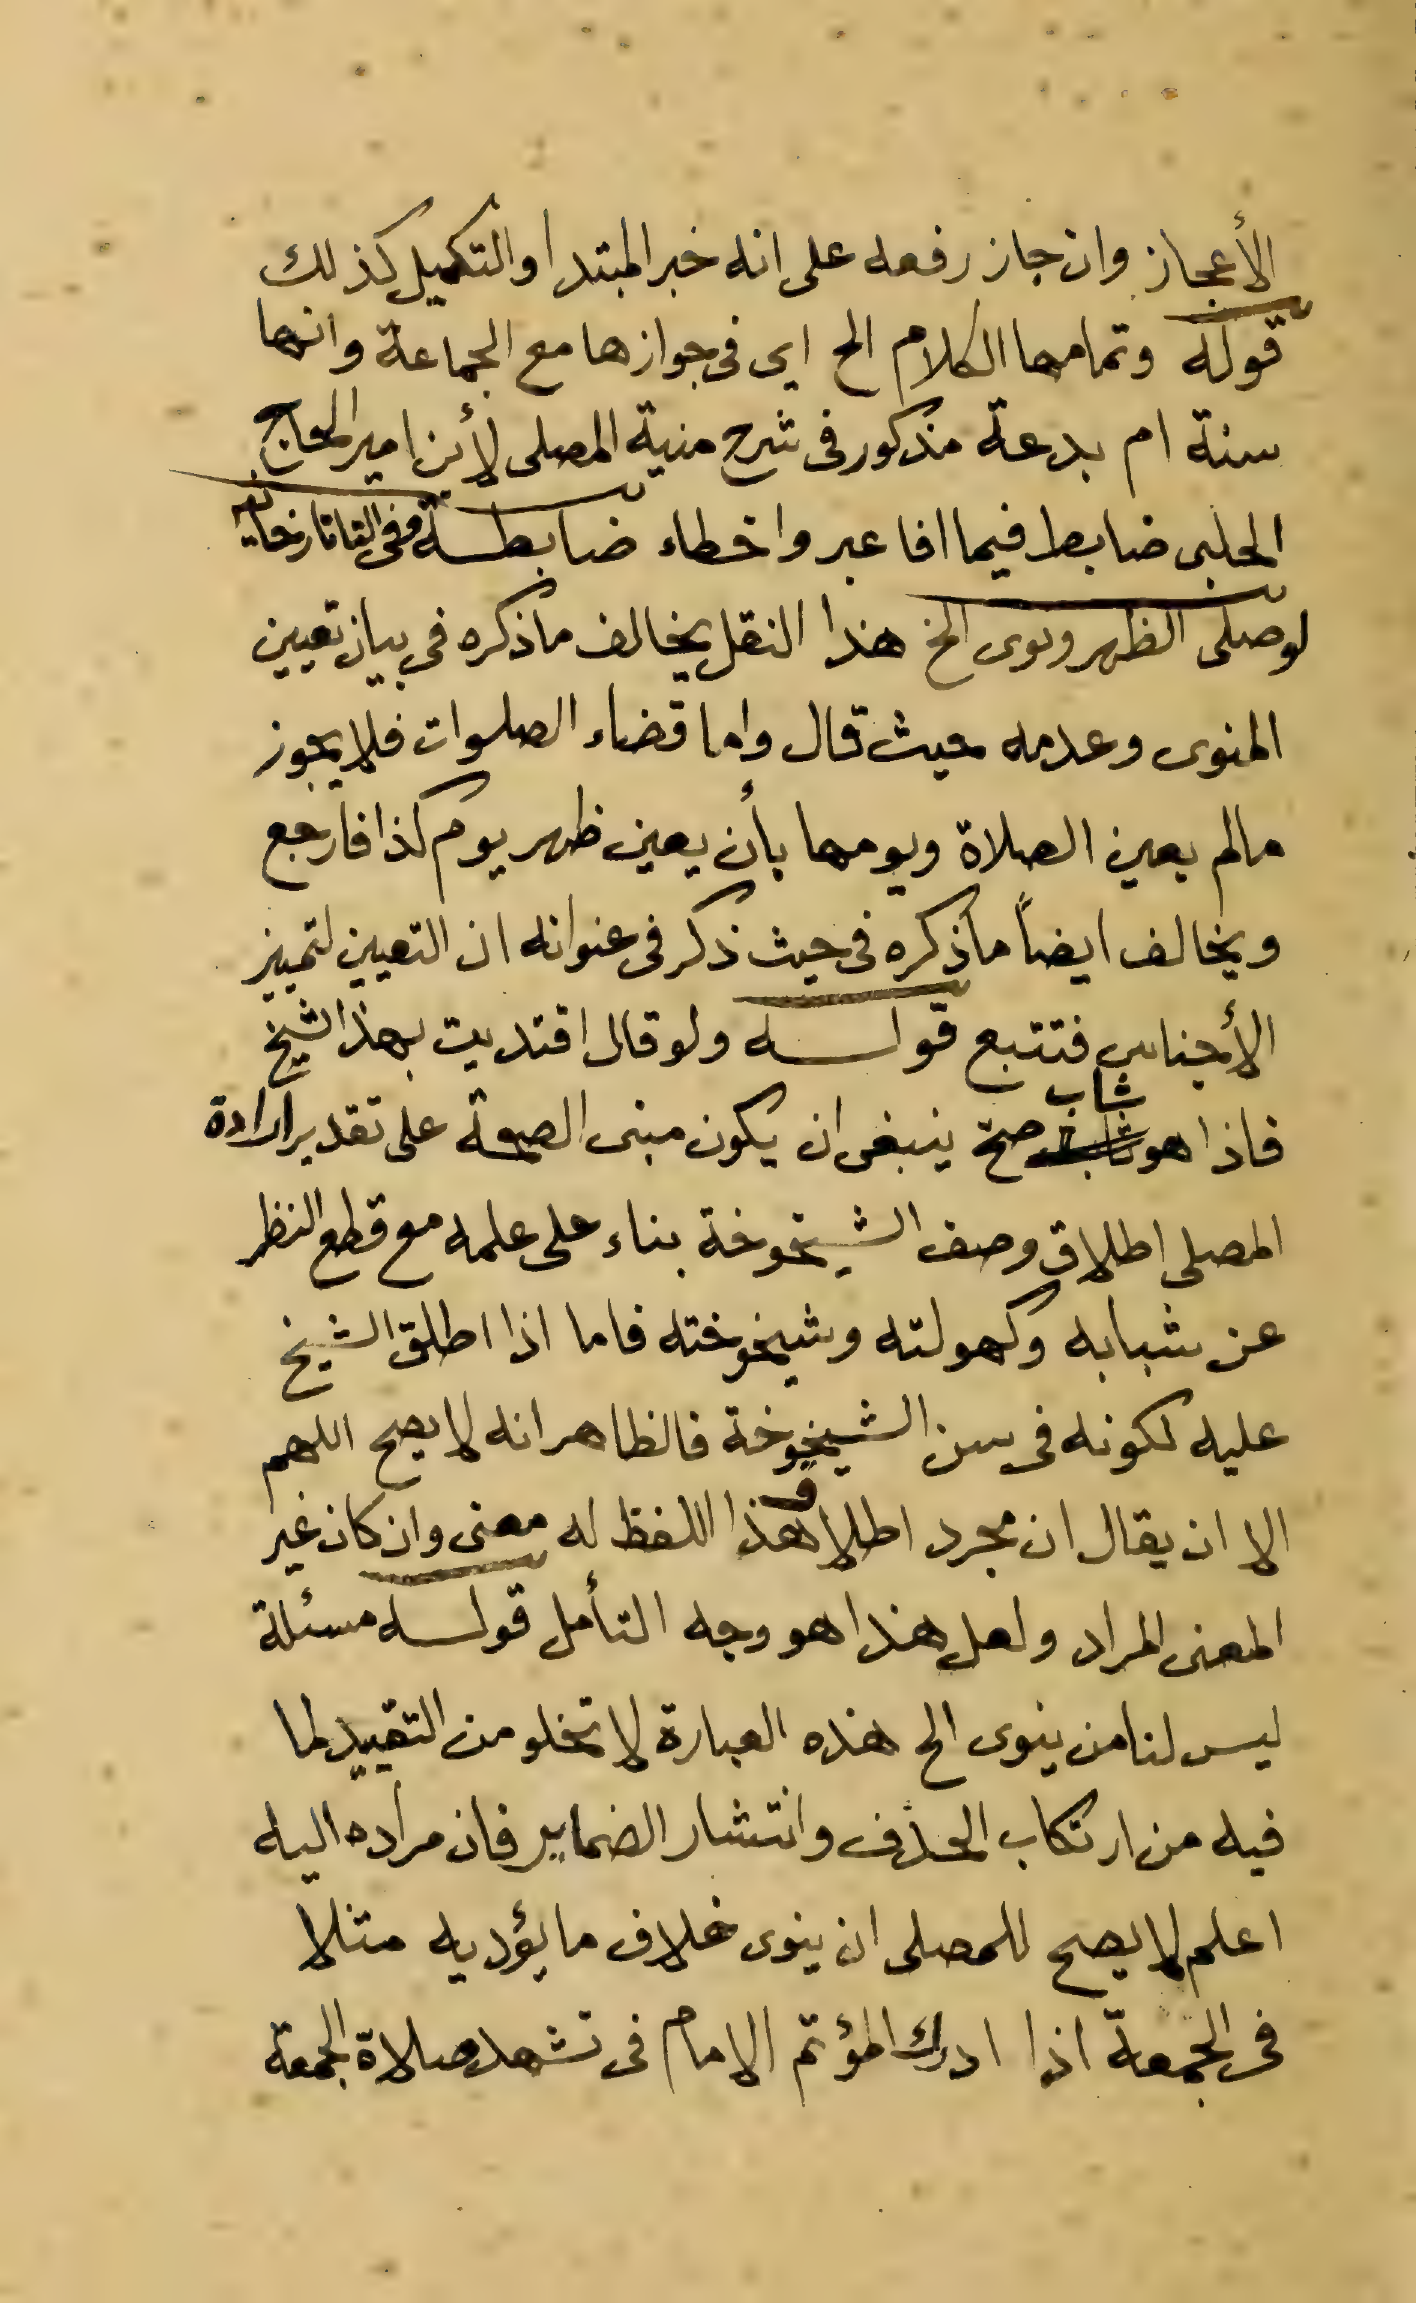 الأعجاز وان جاز رفعه على انه خبر المبتدا والتكميل كذلك
قوله وتمامها الكلام الخ اى فى جوازها مع الجماعة وانها
سنة ام بدعة مذكور فى شرح منية المصلى لأبن امير الحاج
الحلبى ضابط فيما افا عبر واخطاء ضابطة وفى التاتارخانيه
لو صلى الظهر ونوى الخ هذا النقل يخالف ماذكره فى بيان تعيين
المنوى وعدمه حيث قال واما قضاء الصلوات فلا يجوز
مالم يعين الصلاة ويومها بأن يعين ظهر يوم كذا فارجع
ويخالف ايضاً ماذكره فى حيث ذكر فى عنوانه ان التعيين لتمييز
الأجناس فتتبع قوله ولو قال اقتديت بهذا الشيخ
فاذا هو شاب صح ينبغى ان يكون مبنى الصحة على تقدير ارادة
المصلى اطلاق وصف الشيخوخة بناء على علمه مع قطع النظر
عن شبابه وكهولته وشيخوخته فاما اذا اطلق الشيخ
عليه لكونه فى سن الشيخوخة فالظاهر انه لا يصح اللهم
الا ان يقال ان مجرد اطلاق هذا اللفظ له معنى وان كان غير
المعنى المراد ولعل هذا هو وجه التأمل قوله مسئلة
ليس لنا من ينوى الخ هذه العبارة لا تخلو من التقييد لما
فيه من ارتكاب الحذف وانتشار الضماير فان مراده اليه
اعلم لا يصح للمصلى ان ينوى خلاف ما يؤديه مثلا
فى الجمعة اذا ادرك المؤتم الامام فى تشهد صلاة الجمعة